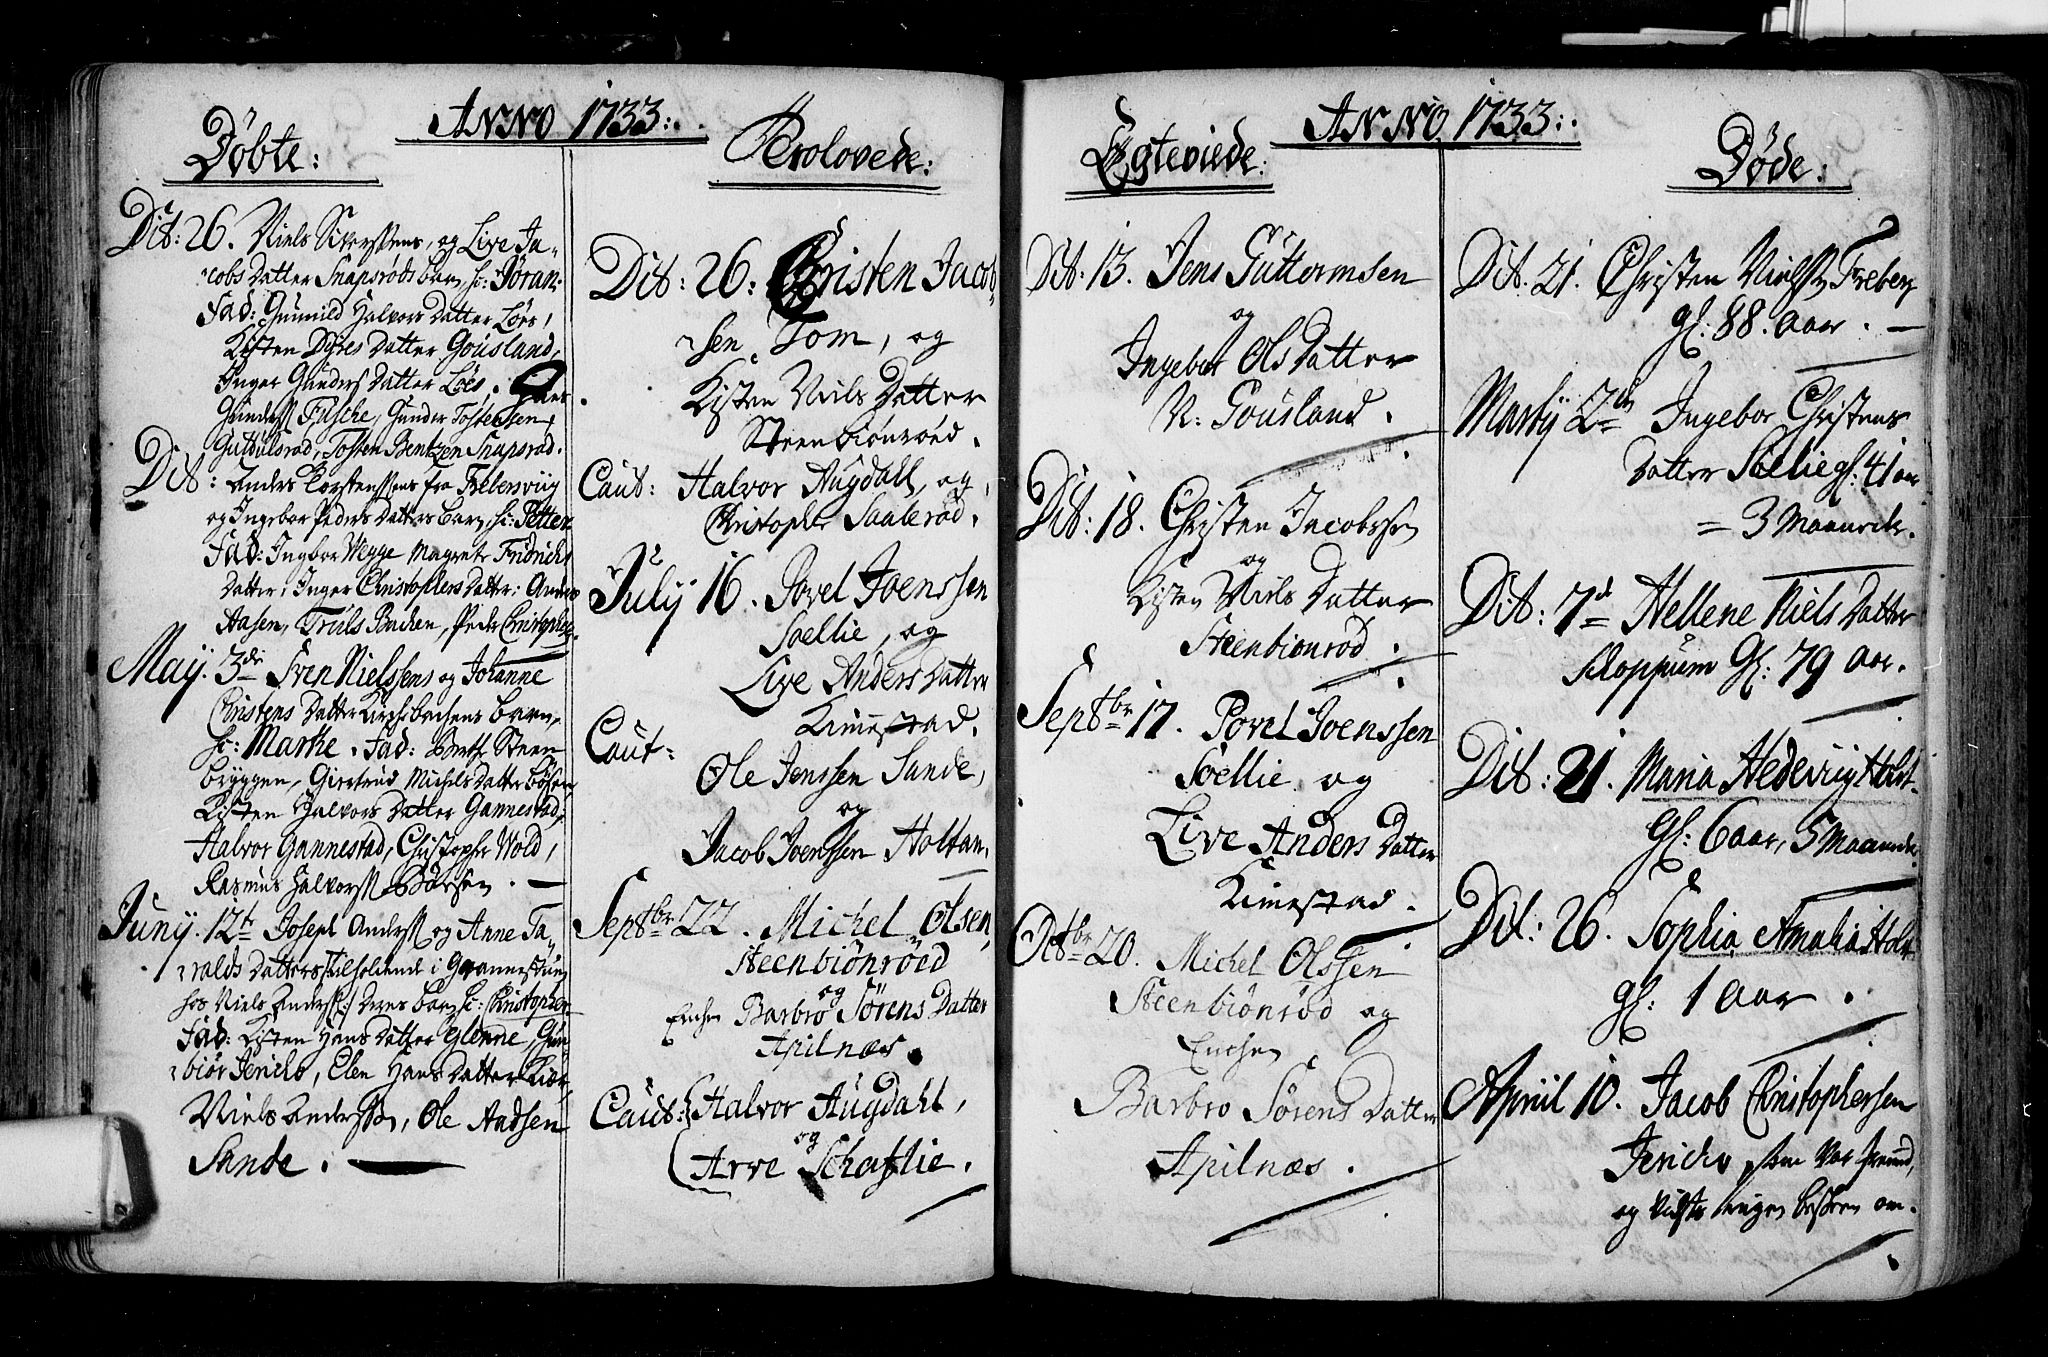 ANNO 1733:.
Døbte:
Dit: 26. Niels Siversens, og Live Ja-
cobs Datter Snapsrøds barn, h: Jøran.
Fad: Gunnild Halvors Datter Løes,
Kisten Dyres Datter Gousland,
Inger Gunders Datter Løes.
Gunders Fusche, Gunder Tostensen,
Gutdulsrød, Tosten Bentzen Snapsrød.
Dit: Anders Torstenssens fra Trebersviig
og Ingebor Peders Datters barn, h: Petter
Fad: Ingbor Vegge Magrete Fridrichs
Datter, Inger Christophers Datter: Anders
Aasen, Truls Bachen, Peder Christophers.
May. 3die Sven Nielssens og Johanne
Christens Datter Kirchebachens barn,
h: Marthe. Fad: Berthe Steen
bryggen, Giertrud Michels Datter Børsen
Kisten Halvors Datter Gannestad,
Halvor Gannestad, Christopher Wold,
Rasmus Halvorss Børsen.
Juny. 12te Joseph Anderss og Anne Ta-
ralds Datters tilholdende i Grannestuen
hos Niels Anderss: / Deres barn h: Christopher
Fad: Kisten Hans Datter Glenne, Gun-
biør Jericho, Elen Hans Datter Kiær,
Niels Anderssen, Ole Aadsen
Sande.
Trolovede:
Dit: 26: Christen Jacob-
sen Tom, og
Kisten Niels Datter
Steenbiønrøed.
Caut: Halvor Augdahl, og
Christopher Saalerød.
July 16. Povel Joenssen
Soellie, og
Live Anders Datter
Kimestad.
Caut:
Ole Jenssen Sande,
og
Jacob Joenssen Holtan.
Septbr 22. Michel Olsen,
Steenbiønrøed
og
Enchen Barbro Sørens Datter
Apilnæs.
Caut: Halvor Augdahl,
og
Arve Schaflie.
ANNO 1733:.
Egteviede:
Dit: 13. Jens Guttormsen
og
Ingebor Ols Datter
N: Gousland.
Dit: 18. Christen Jacobssen
og
Kisten Niels Datter
Steenbionrød.
Septbr 17. Povel Joenssen
Soellie og
Live Anders Datter
Kimestad.
Octbr 20. Michel Olssen
Steenbiønrød og
Enchen
Barbro Sørens Datter
Apilnæs.
Døde:
Dit. 21. Christen Nielss Freberg
gl. 88. aar.
Marty 2den Ingebor Christens
Datter Soelie gl: 41 aar
= 3 Maaneder.
Dit: 7de Hellene Niels Datter
Kloppum gl: 79 aar.
Dit: 21. Maria Hedevig Holst.
gl: 6 aar, 5 Maaneder.
Dit: 26. Sophia Amalia Holst
gl: 1 aar.
Apriil 10. Jacob Christophersen
Jericho som var fremmed,
og vidste ingen besked om.